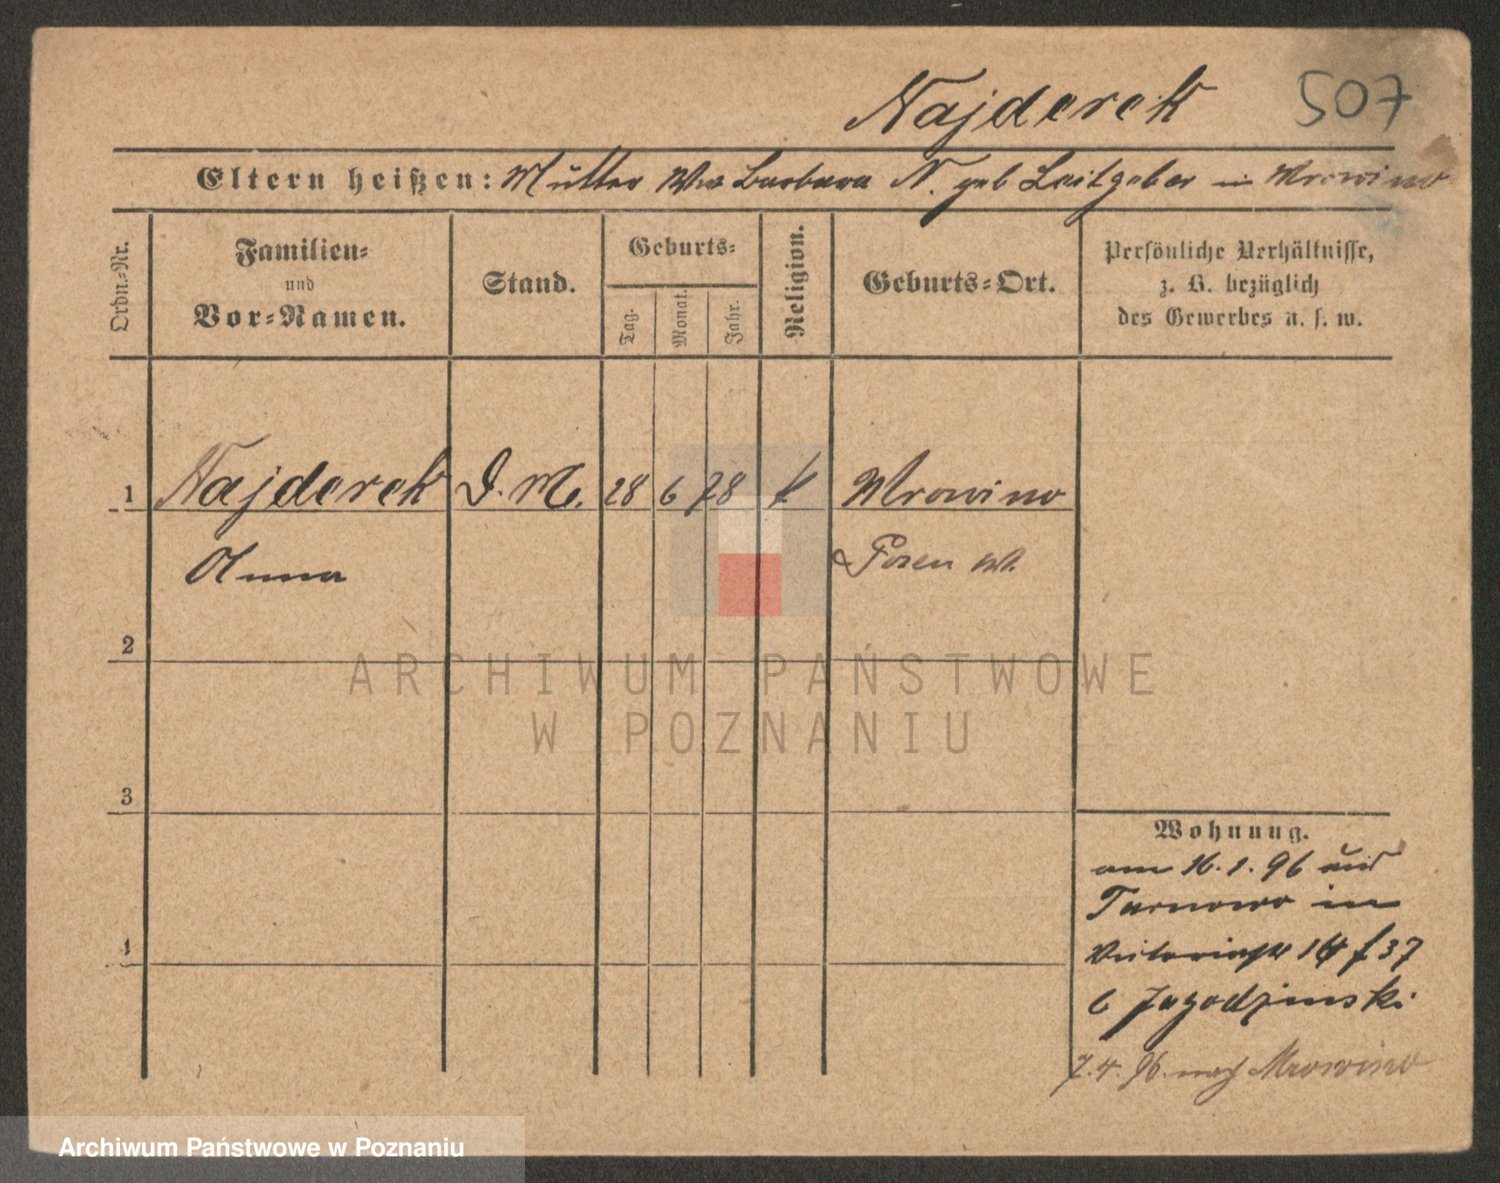 Najderek 507
Eltern heißen: Mutter Ww Barbara N. geb Leitgeber in Mrowino
Ordn.-Nr.
Familien-
und
Vor-Namen.
Stand.
Geburts-
Tag.
Monat.
Jahr.
Religion.
Geburts-Ort.
Persönliche Verhältnisse,
z. B. bezüglich
des Gewerbes u. s. w.
1 Najderek D. M. 28 6 78 k Mrowino
Anna Posen W.
2
ARCHIWUM PAŃSTWOWE
W POZNANIU
3
Wohnung.
am 16.1.96 aus
Tarnowo in
4
Victoriastr 14 f 37
b Jagodzinski
7.4.96. nach Mrowino
Archiwum Państwowe w Poznaniu